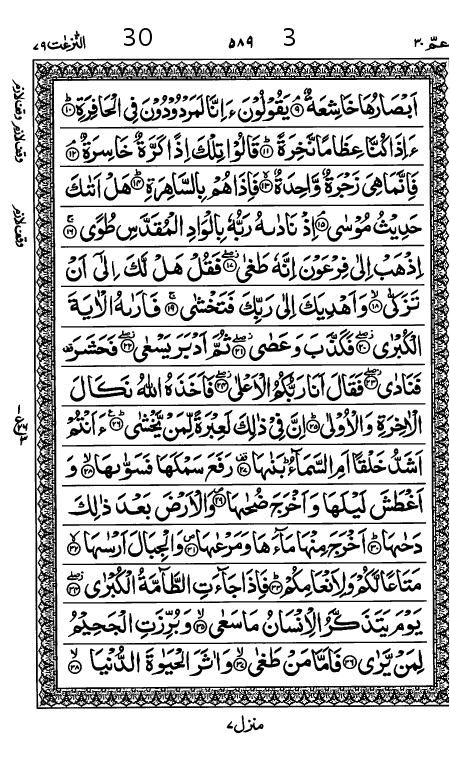 عمّ ٣٠ 3 ٥٨٩ 30 النّٰزعٰت ٧٩
اَبْصَارُهَا خَاشِعَةٌ ۘ ﴿٩﴾ يَقُوْلُوْنَ ءَاِنَّا لَمَرْدُوْدُوْنَ فِى الْحَافِرَةِ ؕ ﴿١٠﴾
ءَاِذَا كُنَّا عِظَامًا نَّخِرَةً ؕ ﴿١١﴾ قَالُوْا تِلْكَ اِذًا كَرَّةٌ خَاسِرَةٌ ۘ ﴿١٢﴾
فَاِنَّمَا هِىَ زَجْرَةٌ وَّاحِدَةٌ ۙ ﴿١٣﴾ فَاِذَا هُمْ بِالسَّاهِرَةِ ؕ ﴿١٤﴾ هَلْ اَتٰىكَ
حَدِيْثُ مُوْسٰى ۘ ﴿١٥﴾ اِذْ نَادٰىهُ رَبُّهٗ بِالْوَادِ الْمُقَدَّسِ طُوًى ۚ ﴿١٦﴾
اِذْهَبْ اِلٰى فِرْعَوْنَ اِنَّهٗ طَغٰى ۖ ﴿١٧﴾ فَقُلْ هَلْ لَّكَ اِلٰٓى اَنْ
تَزَكّٰى ۙ ﴿١٨﴾ وَاَهْدِيَكَ اِلٰى رَبِّكَ فَتَخْشٰى ۚ ﴿١٩﴾ فَاَرٰىهُ الْاٰيَةَ
الْكُبْرٰى ۖ ﴿٢٠﴾ فَكَذَّبَ وَعَصٰى ۖ ﴿٢١﴾ ثُمَّ اَدْبَرَ يَسْعٰى ۖ ﴿٢٢﴾ فَحَشَرَ
فَنَادٰى ۖ ﴿٢٣﴾ فَقَالَ اَنَا رَبُّكُمُ الْاَعْلٰى ۖ ﴿٢٤﴾ فَاَخَذَهُ اللّٰهُ نَكَالَ
الْاٰخِرَةِ وَالْاُوْلٰى ؕ ﴿٢٥﴾ اِنَّ فِىْ ذٰلِكَ لَعِبْرَةً لِّمَنْ يَّخْشٰى ؕ ﴿٢٦﴾ ءَاَنْتُمْ
اَشَدُّ خَلْقًا اَمِ السَّمَآءُ ؕ بَنٰىهَا ﴿٢٧﴾ رَفَعَ سَمْكَهَا فَسَوّٰىهَا ۙ ﴿٢٨﴾ وَ
اَغْطَشَ لَيْلَهَا وَاَخْرَجَ ضُحٰىهَا ۪ ﴿٢٩﴾ وَالْاَرْضَ بَعْدَ ذٰلِكَ
دَحٰىهَا ؕ ﴿٣٠﴾ اَخْرَجَ مِنْهَا مَآءَهَا وَمَرْعٰىهَا ۪ ﴿٣١﴾ وَالْجِبَالَ اَرْسٰىهَا ۙ ﴿٣٢﴾
مَتَاعًا لَّكُمْ وَلِاَنْعَامِكُمْ ؕ ﴿٣٣﴾ فَاِذَا جَآءَتِ الطَّآمَّةُ الْكُبْرٰى ۖ ﴿٣٤﴾
يَوْمَ يَتَذَكَّرُ الْاِنْسَانُ مَا سَعٰى ۙ ﴿٣٥﴾ وَبُرِّزَتِ الْجَحِيْمُ
لِمَنْ يَّرٰى ﴿٣٦﴾ فَاَمَّا مَنْ طَغٰى ۙ ﴿٣٧﴾ وَاٰثَرَ الْحَيٰوةَ الدُّنْيَا ۙ ﴿٣٨﴾
وقف لازم
وقف لازم
وقف لازم
منزل ٧